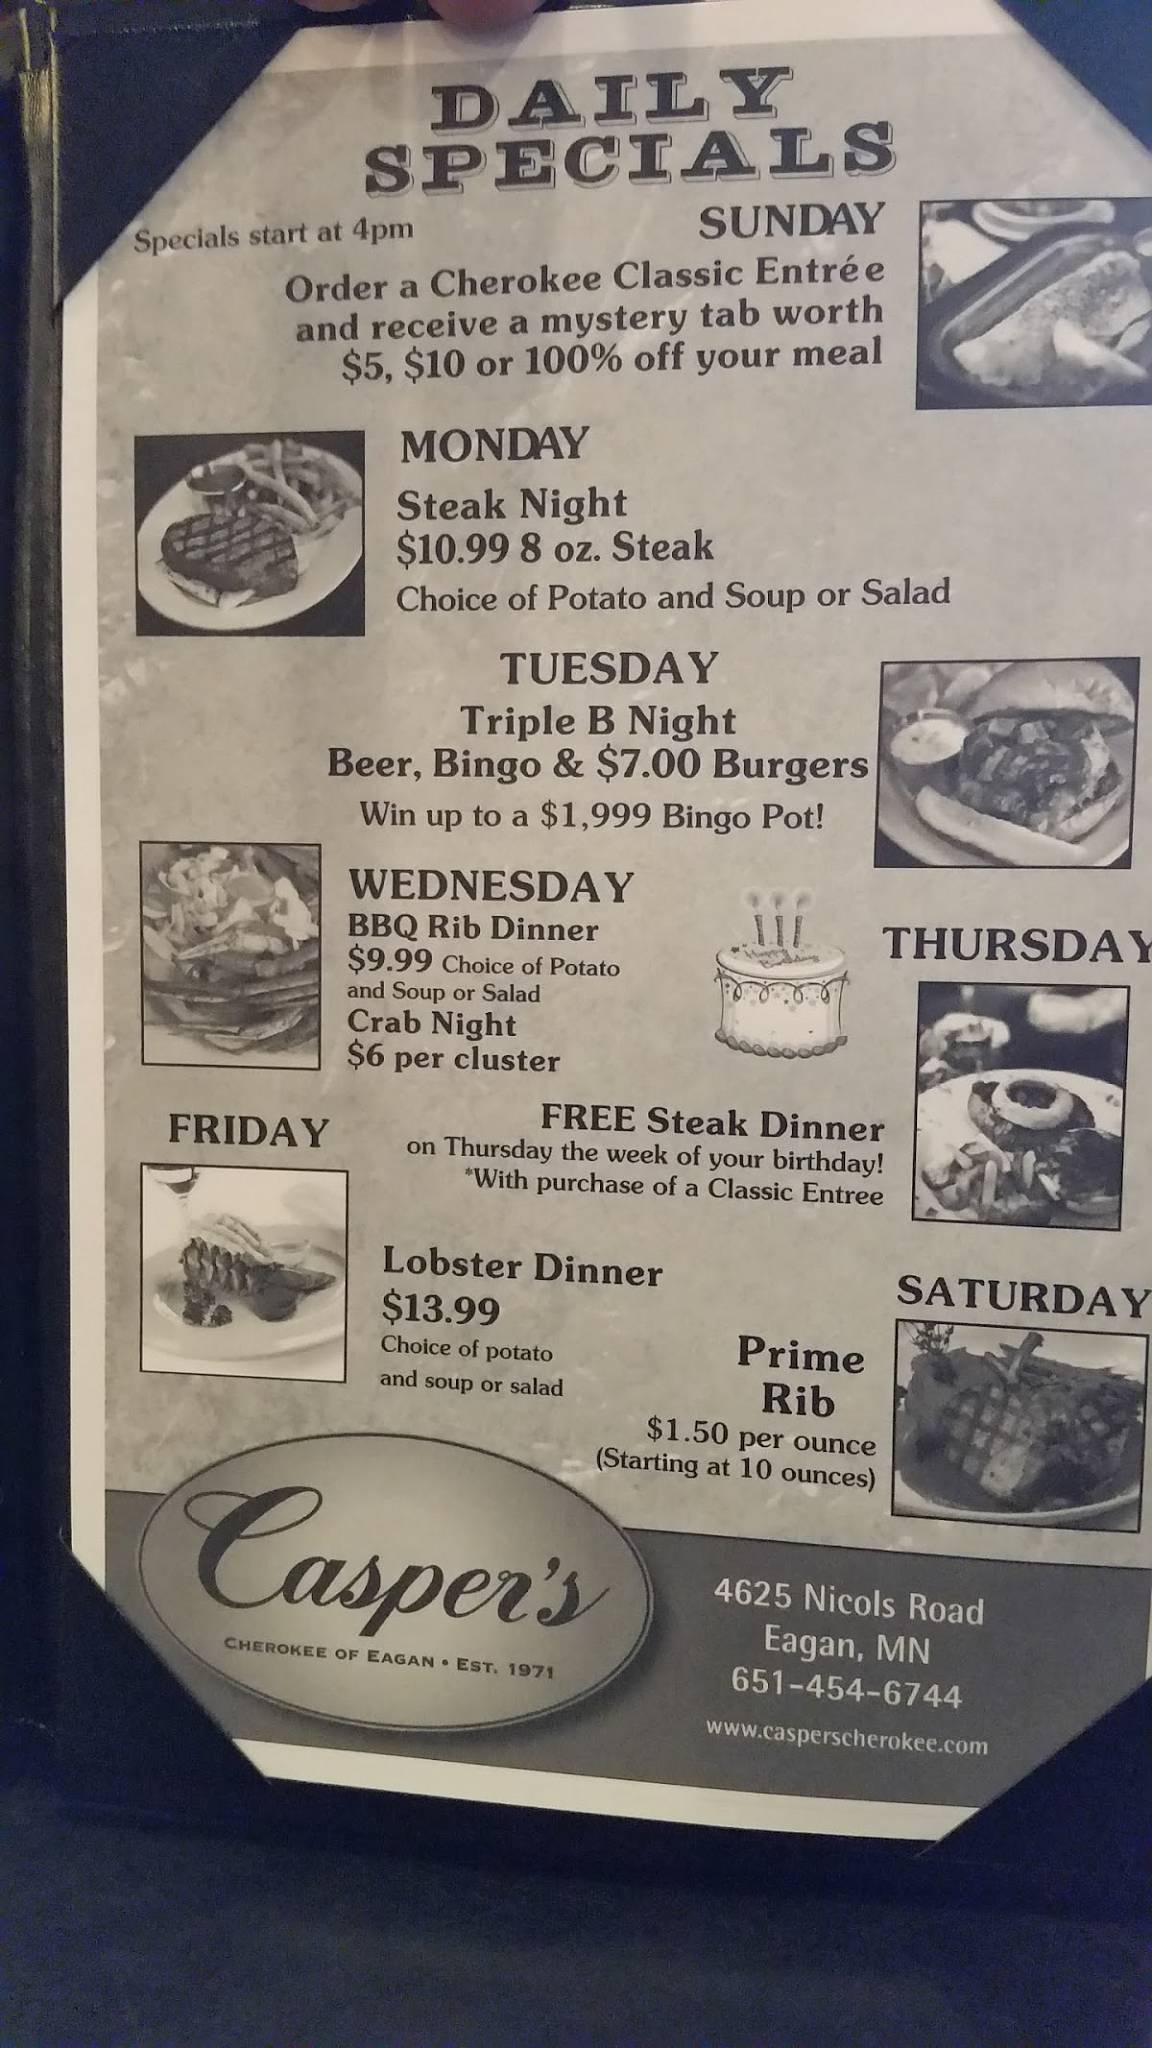 DAILY
SPECIALS
Specials start at 4pm
SUNDAY
Order a Cherokee Classic Entrée
and receive a mystery tab worth
$5, $10 or 100% off your meal
MONDAY
Steak Night
$10.99 8 oz. Steak
Choice of Potato and Soup or Salad
TUESDAY
Triple B Night
Beer, Bingo & $7.00 Burgers
Win up to a $1,999 Bingo Pot!
WEDNESDAY
BBQ Rib Dinner
$9.99 Choice of Potato
and Soup or Salad
Crab Night
$6 per cluster
Happy
Birthday
THURSDAY
FREE Steak Dinner
on Thursday the week of your birthday!
*With purchase of a Classic Entree
FRIDAY
Lobster Dinner
$13.99
Choice of potato
and soup or salad
SATURDAY
Prime
Rib
$1.50 per ounce
(Starting at 10 ounces)
Casper's
CHEROKEE OF EAGAN • EST. 1971
4625 Nicols Road
Eagan, MN
651-454-6744
www.casperscherokee.com